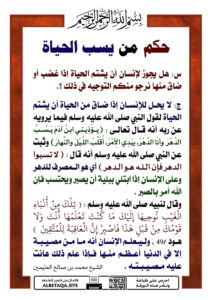 بسم الله الرحمن الرحيم
حكم من يسب الحياة
س: هل يجوز لإنسان أن يشتم الحياة اذا غضب أو
ضاق منها نرجو منكم التوجيه في ذلك ؟.
ج: لا يحل للإنسان إذا ضاق من الحياة أن يشتم
الحياة لقول النبي صلى الله عليه وسلم فيما يرويه
عن ربه أنه قال تعالى : ( يؤذيني ابن آدم يسب
الدهر وأنا الدهر، بيدي الأمر، أقلب الليل والنهار) وثبت
عن النبي صلى الله عليه وسلم أنه قال : ( لا تسبوا
الدهر فإن الله هو الدهر ) أي هو المصرف للدهر
وعلى الإنسان إذا ابتلي ببلية أن يصبر ويحتسب فإن
الله أمر بالصبر .
وقال لنبيه صلى الله عليه وسلم : : ( تِلْكَ مِنْ أَنْبَاءِ
الْغَيْبِ نُوحِيهَا إِلَيْكَ مَا كُنْتَ تَعْلَمُهَا أَنْتَ وَلَا
قَوْمُكَ مِنْ قَبْلِ هَذَا فَاصْبِرْ إِنَّ الْعَاقِبَةَ لِلْمُتَّقِينَ )
هود /49 . وليعلم الإنسان أنه ما من مصيبة
إلا في الدنيا أعظم منها فإذا علم ذلك هانت
عليه مصيبته . الشيخ محمد بن صالح العثيمين
ALBETAQA.SITE